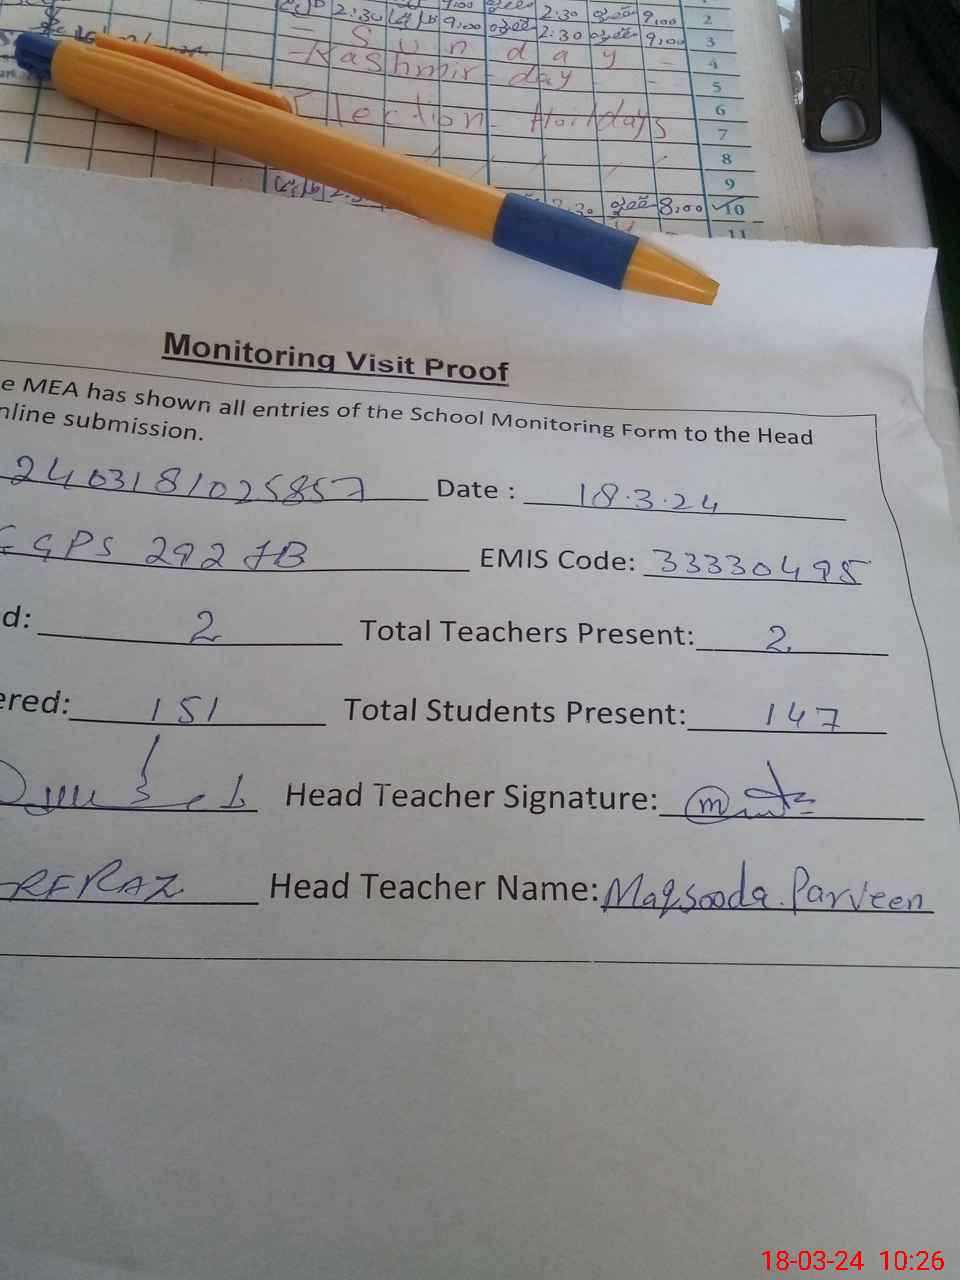 2:30 9,00 2:30 9,00 2
2:30 9,00 3
- S u n d a y - 4
- Kashmir day - 5
Election Holidays 6
7
8
9
2:30 8,00 10
11
Monitoring Visit Proof
e MEA has shown all entries of the School Monitoring Form to the Head
nline submission.
2403181025857 Date : 18.3.24
GGPS 292 JB EMIS Code: 33330495
d: 2 Total Teachers Present: 2
ered: 151 Total Students Present: 147
Head Teacher Signature:
RFRAZ Head Teacher Name: Maqsooda Parveen
18-03-24 10:26